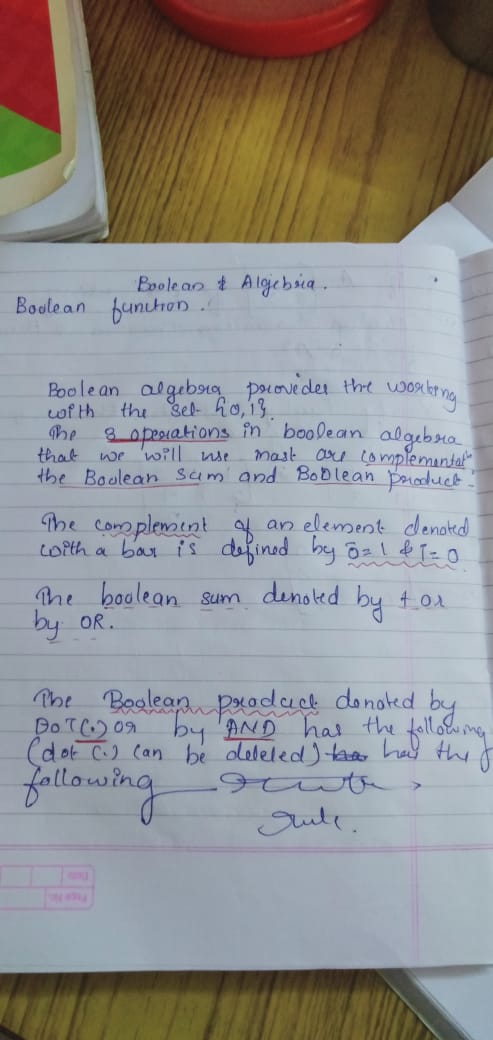 Boolean & Algebra.
Boolean function.
Boolean algebra provides the working
with the set {0,1}.
The 3 operations in boolean algebra
that we will use most are complementatⁿ
the Boolean Sum and Boolean product.
The complement of an element denoted
with a bar is defined by 0̄=1 & 1̄=0
The boolean sum denoted by + or
by OR.
The Boolean product denoted by
DOT(.) or by AND has the following
(dot (.) can be deleted) has the
following
rule.
Date
Page No.